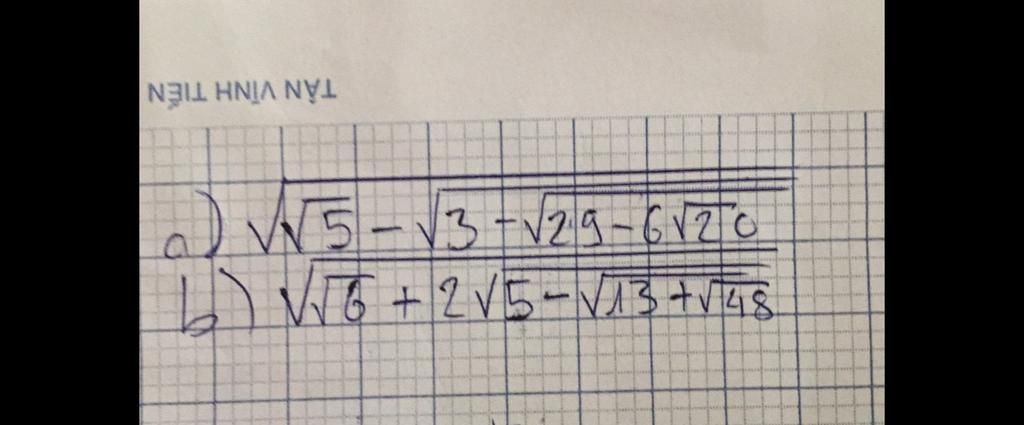 TÂN VĨNH TIẾN
a) √(√5 - √(3 - √(29 - 6√20)))
b) √(√6 + 2√(5 - √(13 + √48)))